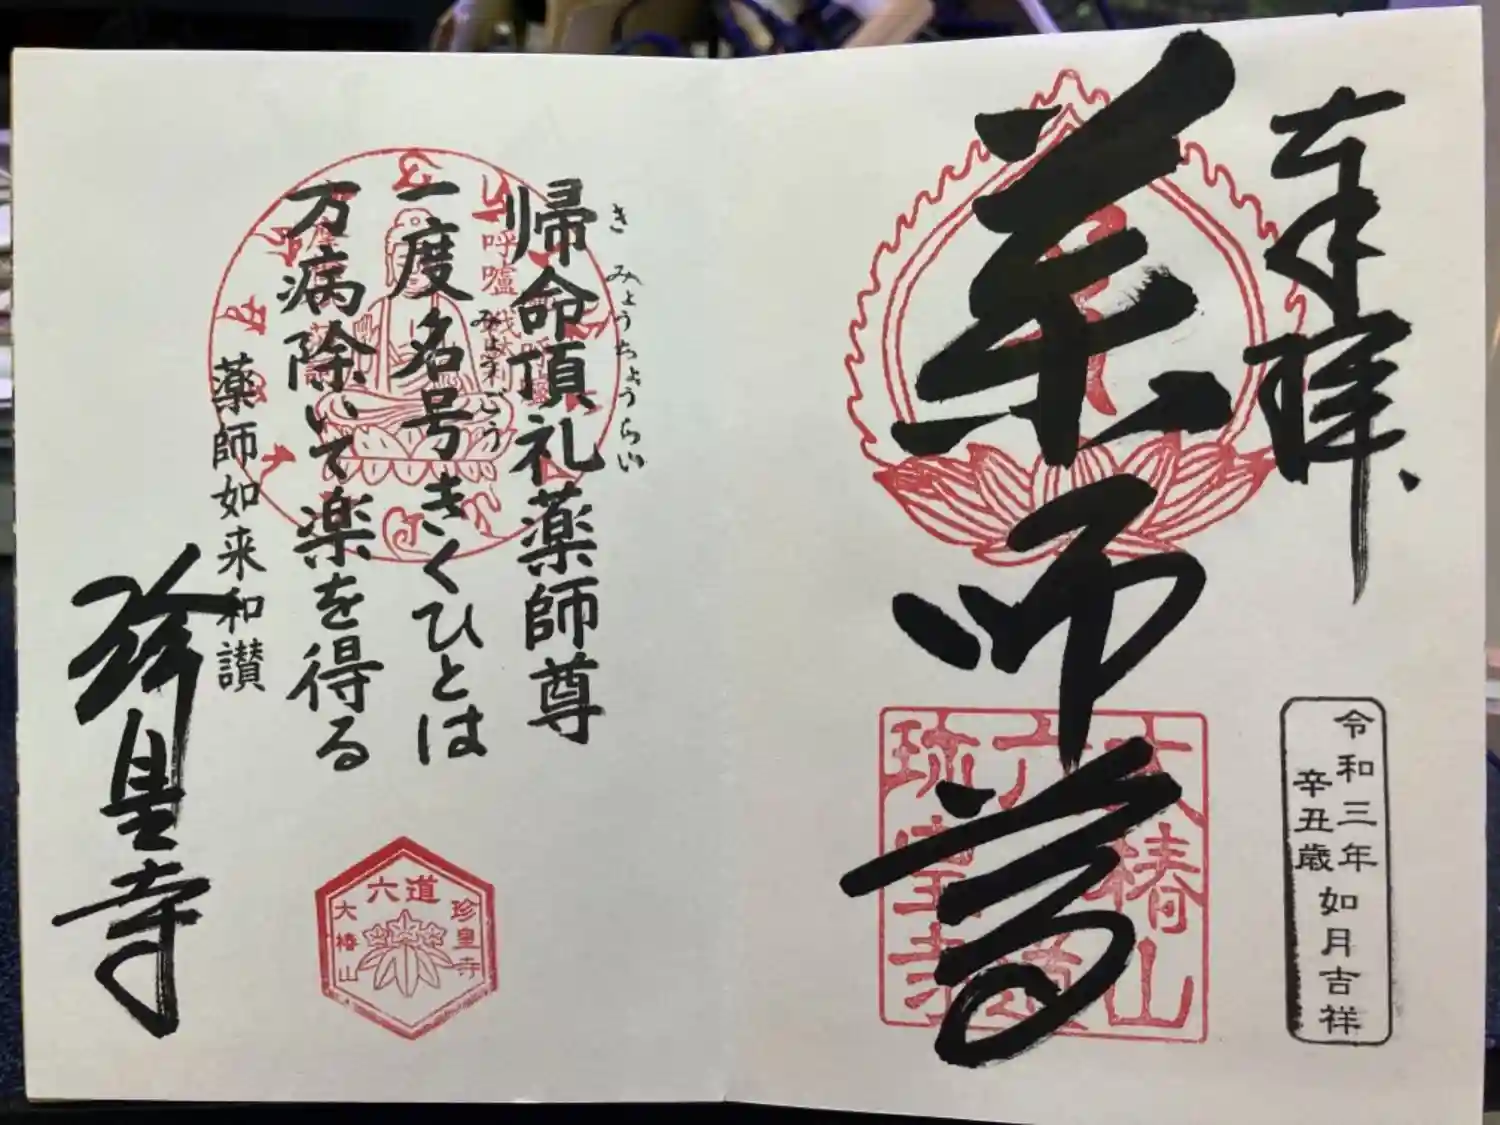 奉拝
薬師尊
大椿山
六道
珍皇寺
令和三年
辛丑歳
如月吉祥
帰命頂礼薬師尊
き みょうちょうらい
一度名号きくひとは
みょうごう
万病除いて楽を得る
薬師如来和讃
珍皇寺
六道
珍皇寺
大椿山